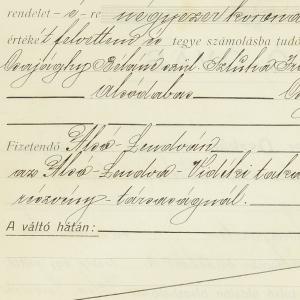 rendelet - e - re négyezer korona
értéke't felvettem és tegye számolásba tudó
Csajághy Béláné szül. Sztuha
Alsódabas
Fizetendő Alsó-Lendván
az Alsó-Lendva-Vidéki taka
részvény-társaságnál.
A váltó hátán: